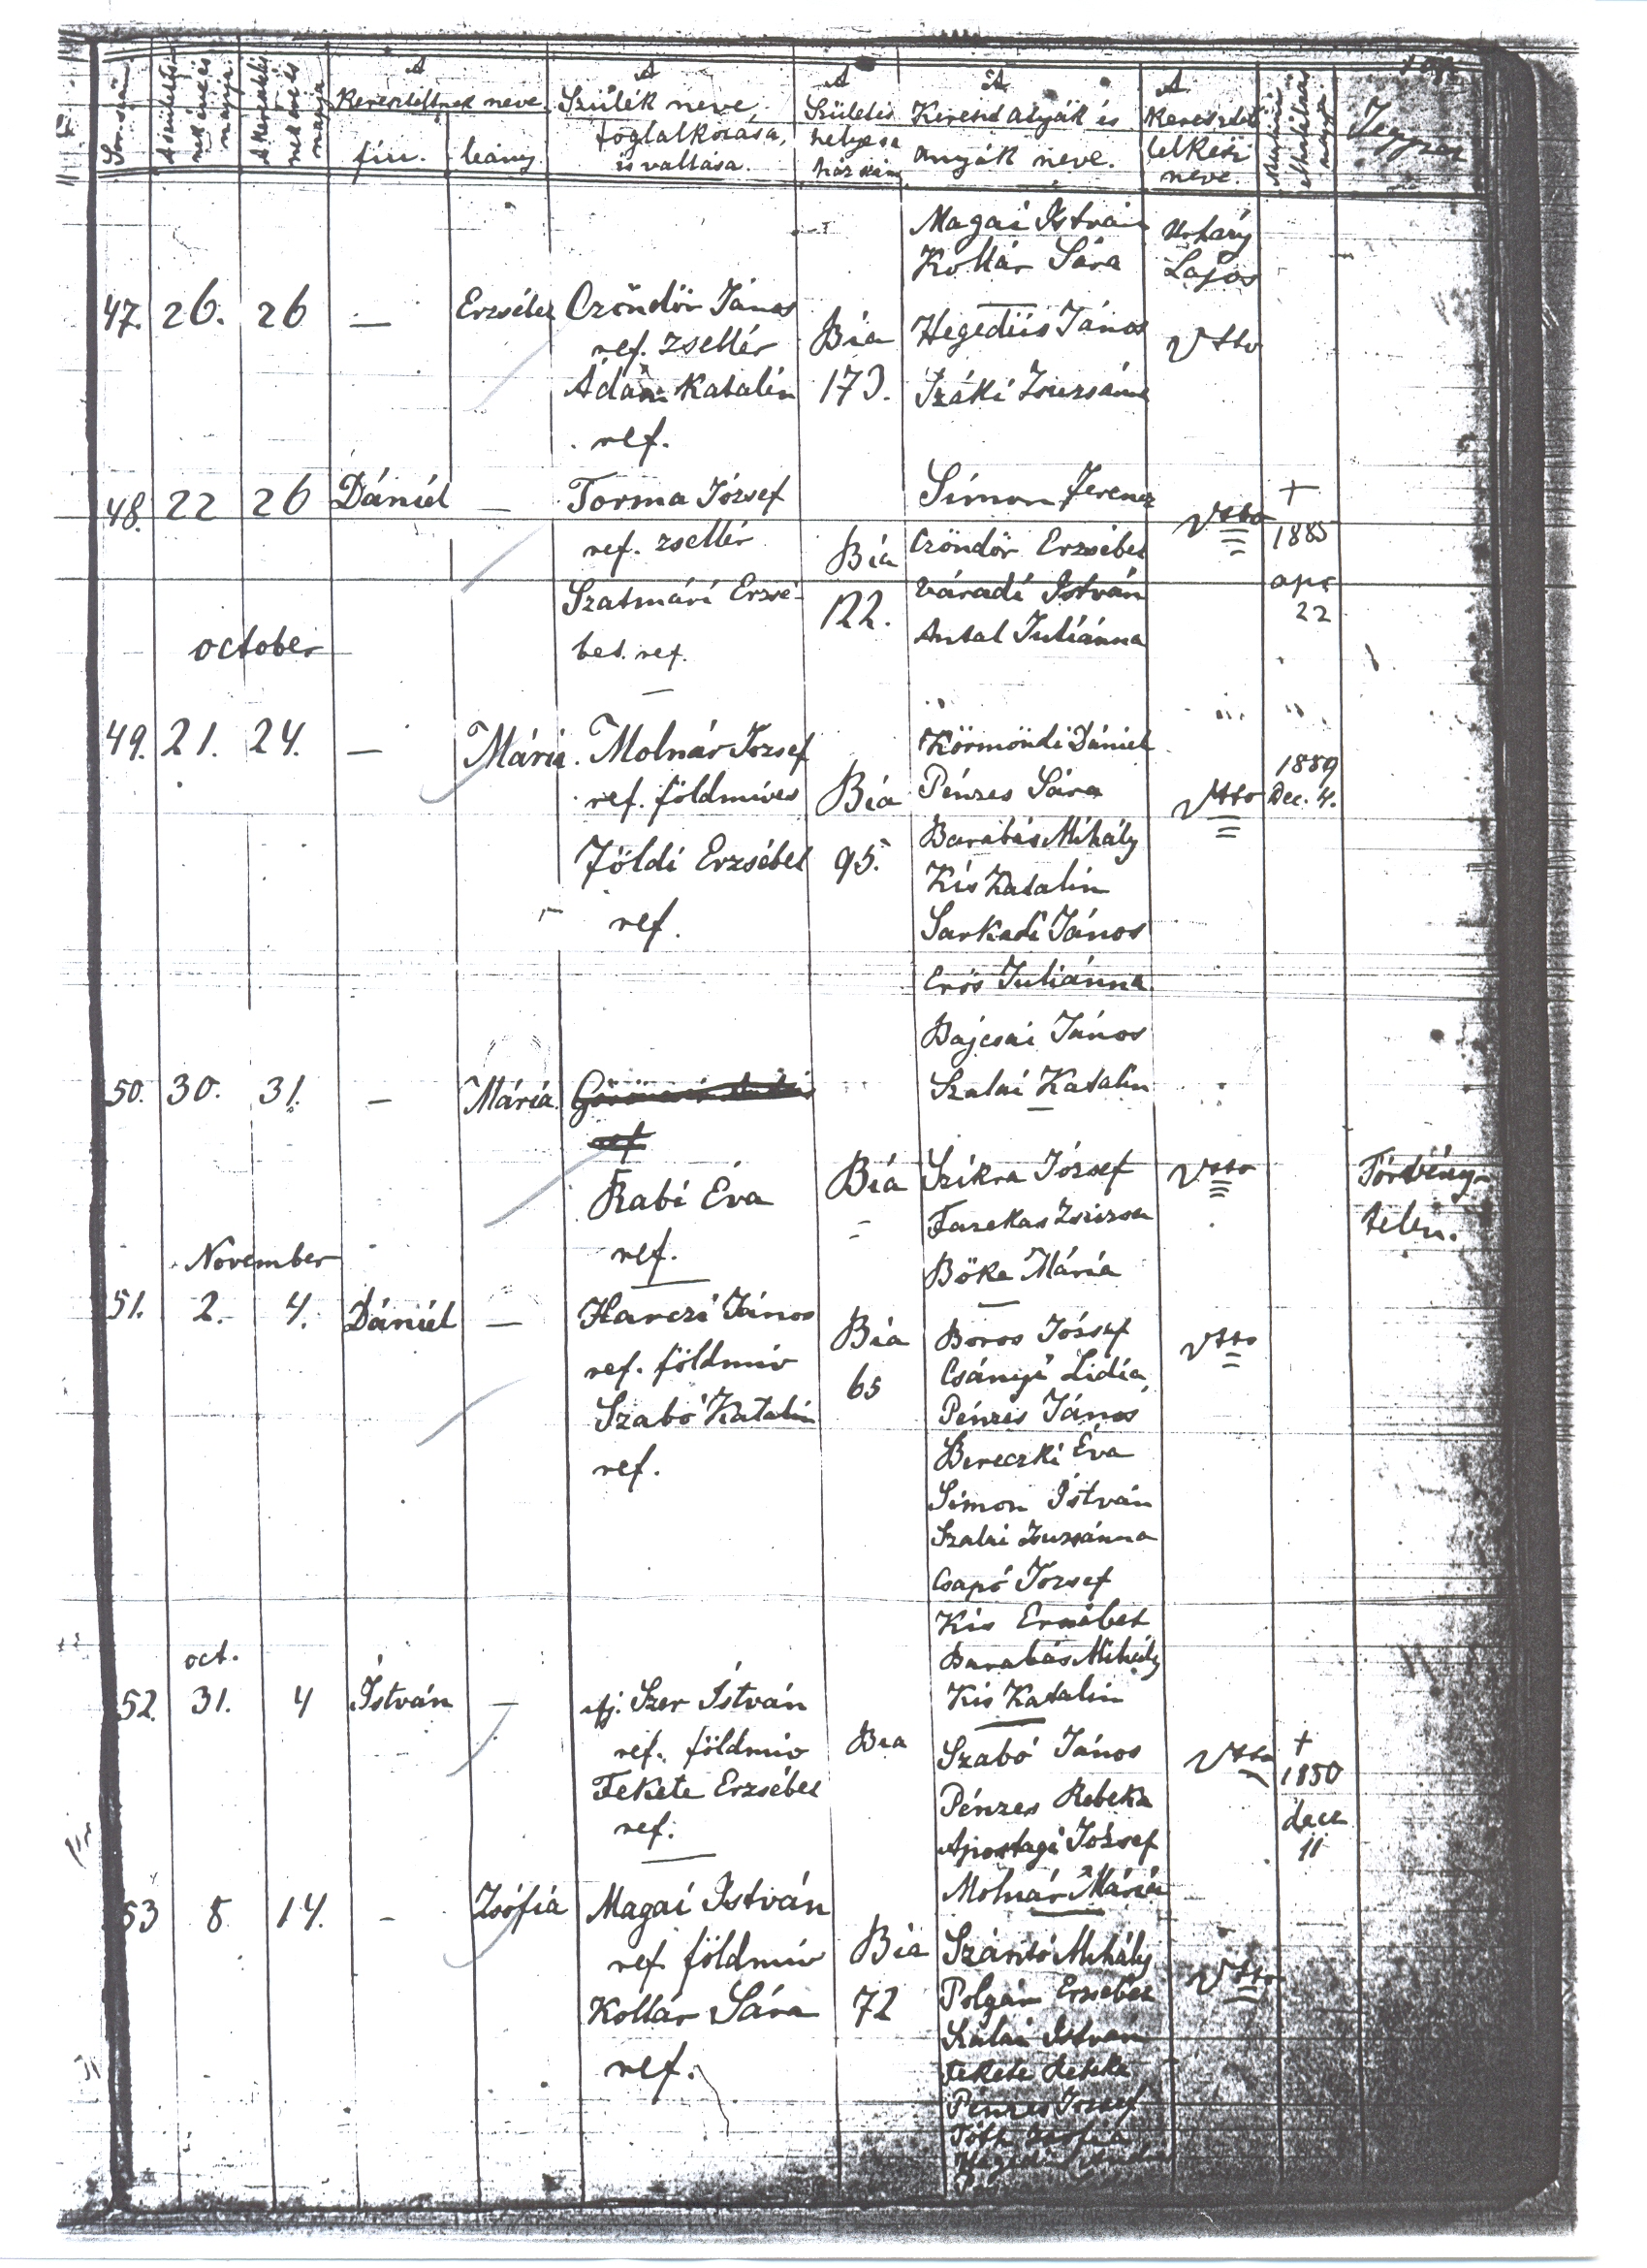 A Kereszteltnek neve
fiu.
leány
A Szülék neve
foglalkozása,
és vallása.
A Születés
helye s a
házszám
A Kereszt atyák és
anyák neve.
A Keresztelő
lelkész
neve.
Jegyzet
Magai István
Kollár Sára
Lajos
47. 26. 26 — Erzsébet
Czöndör János
ref. zsellér
Ádám Katalin
ref.
Bia
173.
Hegedüs János
Száki Zsuzsánna
Dtto
48. 22 26 Dániel —
Torma József
ref. zsellér
Szatmári Erzsé-
bet. ref.
Bia
122.
Simon Ferencz
Czöndör Erzsébet
Váradi István
Antal Juliánna
Dtto
+
1885
apr
22
october
49. 21. 24. — Mária.
Molnár József
ref. földmíves
Földi Erzsébet
ref.
Bia
95.
Körmöndi Dániel
Pénzes Sára
Barabás Mihály
Kis Katalin
Sarkadi János
Erös Juliánna
Bajcsai János
Szalai Katalin
Dtto
1889
Dec. 4.
50. 30. 31. — Mária.
ref
Rabi Éva
ref.
Bia
Szikra József
Fazekas Zsuzsa
Böke Mária
Dtto
Törvény-
telen.
November
51. 2. 4. Dániel —
Harczi János
ref. földmív
Szabó Katalin
ref.
Bia
65
Boros József
Csányi Lidia
Pénzes János
Bereczki Éva
Simon István
Szalai Zsuzsánna
Csapó József
Kis Erzsébet
Barabás Mihály
Kis Katalin
Dtto
oct.
52. 31. 4 István —
ifj. Szer István
ref. földmív
Fekete Erzsébet
ref.
Bia
Szabó János
Pénzes Rebeka
Apostagi József
Molnár Mária
Dtto
+
1850
dece
11
53 8 14. — Zsófia
Magai István
ref földmív
Kollár Sára
ref.
Bia
72
Szántó Mihály
Polgár Erzsébet
Szalai István
Fekete
Pénzes József
Tóth
Dtto